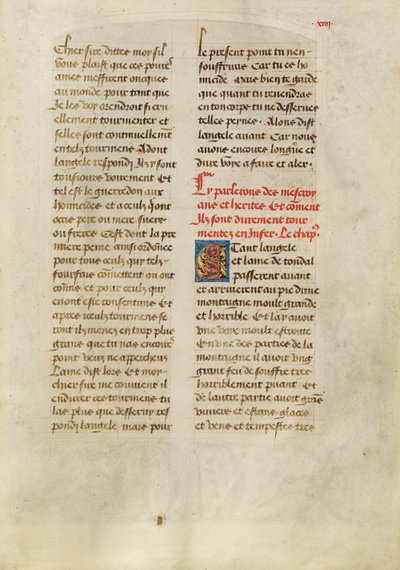 xiiij
Chier sire dittes moy sil
vous plaist que ces poures
ames meffirent oncques
au monde pour tant que
Je les voy orendroit si cru
ellement tourmenter et
selles sont continuellement
en telz tourmens Adont
langele respondj Ilz y sont
tousiours voirement Et
tel est le guerredon aux
homicides et a ceulz quont
occis pere ou mere suers
ou freres Cest dont la pre
miere peine ainsi ordonnee
pour tous ceulz qui telz
fourfais commettent ou ont
commis et pour ceulz qui
en ont este consentans Et
apres ceulz tourmens se
ront ilz menez en trop plus
grans que tu nas encores
point veuz ne apperceuz
Lame dist lors Et moy
chier sire me convient il
endurer ces tourmens tu
las plus que desseruy res
pondj langele mais pour
le present point tu nen
souffriras Car tu es ho
micide Mais bien te garde
que quant tu revendras
en ton corps tu ne desserues
telles peynes. Alons dist
langele auant Car nous
auons encores longue et
dure voye a faire et aler.
Cy parlerons des mescroy
ans et herites Et coment
Ilz sont durement tour
mentez en Infer. Le chapitre
Tant langele
et lame de tondal
passerent auant
et arriuerent au pie dune
montaigne moult grande
et horrible Et la y auoit
vne voye moult estroite
En vne des parties de la
montaigne il auoit vng
grant feu de souffre tres
horriblement puant Et
de lautre partie auoit grans
et vens et tempestes tres